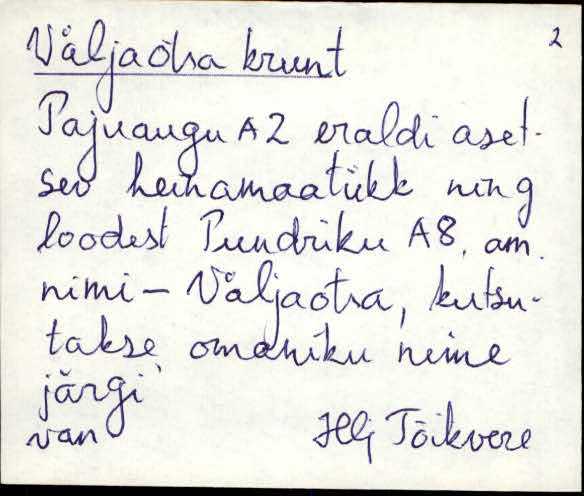 Väljaotsa krunt 2
Pajuaugu A2 eraldi aset-
sev heinamaatükk ning
loodest Pundriku A8, am.
nimi – Väljaotsa, kutsu-
takse omaniku nime
järgi
van Tõikvere